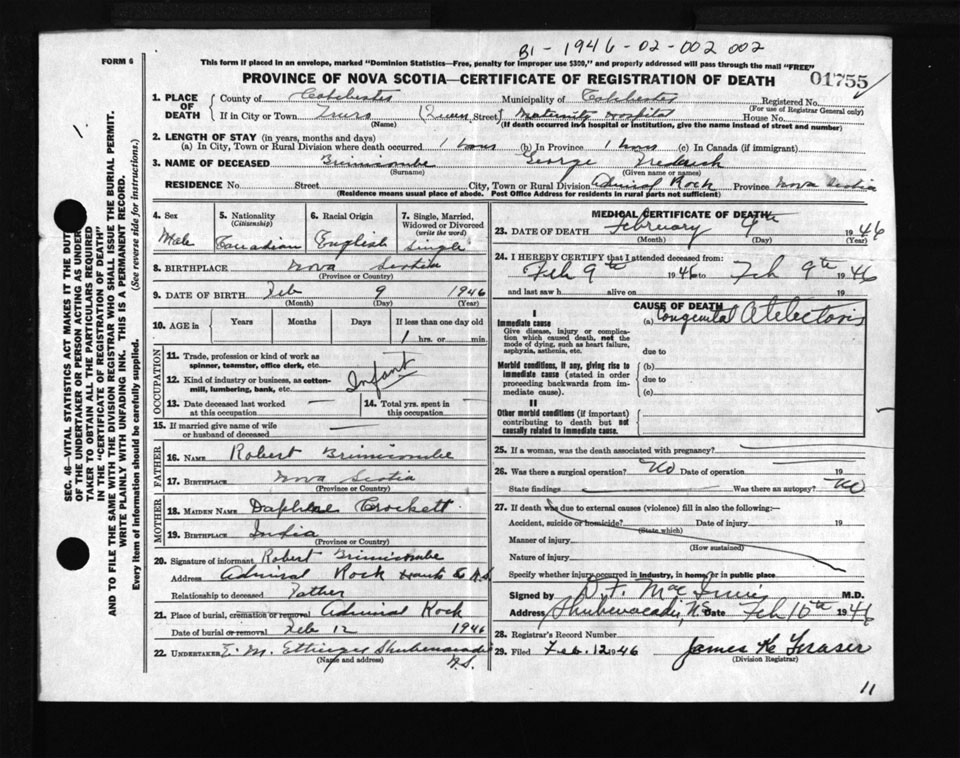 B1-1946-02-002 002
FORM 6
This form if placed in an envelope, marked "Dominion Statistics—Free, penalty for improper use $300," and properly addressed will pass through the mail "FREE"
PROVINCE OF NOVA SCOTIA—CERTIFICATE OF REGISTRATION OF DEATH
01755
1. PLACE OF DEATH
County of Colchester Municipality of Colchester Registered No.
(For use of Registrar General only)
If in City or Town Truro (Queen Street) Maternity Hospital House No.
(Name) (If death occurred in a hospital or institution, give the name instead of street and number)
2. LENGTH OF STAY (in years, months and days)
(a) In City, Town or Rural Division where death occurred 1 hour (b) In Province 1 hour (c) In Canada (if immigrant)
3. NAME OF DECEASED Brimicombe George Fredrick
(Surname) (Given name or names)
RESIDENCE No. Street City, Town or Rural Division Admiral Rock Province Nova Scotia
(Residence means usual place of abode. Post Office Address for residents in rural parts not sufficient)
4. Sex
Male
5. Nationality
(Citizenship)
Canadian
6. Racial Origin
English
7. Single, Married, Widowed or Divorced
(write the word)
Single
8. BIRTHPLACE Nova Scotia
(Province or Country)
9. DATE OF BIRTH Feb 9 1946
(Month) (Day) (Year)
10. AGE in Years Months Days If less than one day old
1 hrs. or min.
OCCUPATION
11. Trade, profession or kind of work as spinner, teamster, office clerk, etc.
12. Kind of industry or business, as cotton-mill, lumbering, bank, etc.
Infant
13. Date deceased last worked at this occupation
14. Total yrs. spent in this occupation
15. If married give name of wife or husband of deceased
FATHER
16. NAME Robert Brimicombe
17. BIRTHPLACE Nova Scotia
(Province or Country)
MOTHER
18. MAIDEN NAME Daphne Crockett
19. BIRTHPLACE India
(Province or Country)
20. Signature of informant Robert Brimicombe
Address Admiral Rock Hants Co N.S.
Relationship to deceased Father
21. Place of burial, cremation or removal Admiral Rock
Date of burial or removal Feb 12 1946
22. UNDERTAKER E. M. Ettinger Shubenacadie
(Name and address) N.S.
MEDICAL CERTIFICATE OF DEATH
23. DATE OF DEATH February 9th 1946
(Month) (Day) (Year)
24. I HEREBY CERTIFY that I attended deceased from:
Feb 9th 1946 to Feb 9th 1946
and last saw h alive on 19
CAUSE OF DEATH
I
Immediate cause (a) Congenital Atelectasis
Give disease, injury or complication which caused death, not the mode of dying, such as heart failure, asphyxia, asthenia, etc.
due to
Morbid conditions, if any, giving rise to immediate cause (stated in order proceeding backwards from immediate cause).
(b)
due to
(c)
II
Other morbid conditions (if important) contributing to death but not causally related to immediate cause.
25. If a woman, was the death associated with pregnancy?
26. Was there a surgical operation? No Date of operation 19
State findings Was there an autopsy? No
27. If death was due to external causes (violence) fill in also the following:—
Accident, suicide or homicide? Date of injury 19
(State which)
Manner of injury
(How sustained)
Nature of injury
Specify whether injury occurred in industry, in home, or in public place
Signed by D. F. MacInnis M.D.
Address Shubenacadie, N.S. Date Feb 10th 1946
28. Registrar's Record Number
29. Filed Feb. 12 1946 James K Fraser
(Division Registrar)
11
SEC. 46—VITAL STATISTICS ACT MAKES IT THE DUTY
OF THE UNDERTAKER OR PERSON ACTING AS UNDER-
TAKER TO OBTAIN ALL THE PARTICULARS REQUIRED
IN THE "CERTIFICATE OF REGISTRATION OF DEATH"
AND TO FILE THE SAME WITH THE DIVISION REGISTRAR WHO SHALL ISSUE THE BURIAL PERMIT.
WRITE PLAINLY WITH UNFADING INK. THIS IS A PERMANENT RECORD.
Every item of information should be carefully supplied. (See reverse side for instructions.)